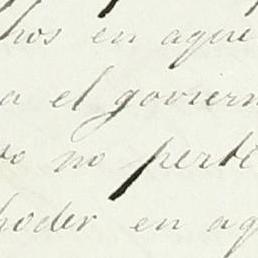 hos en aque
a el goviern
no perti
poder en aq